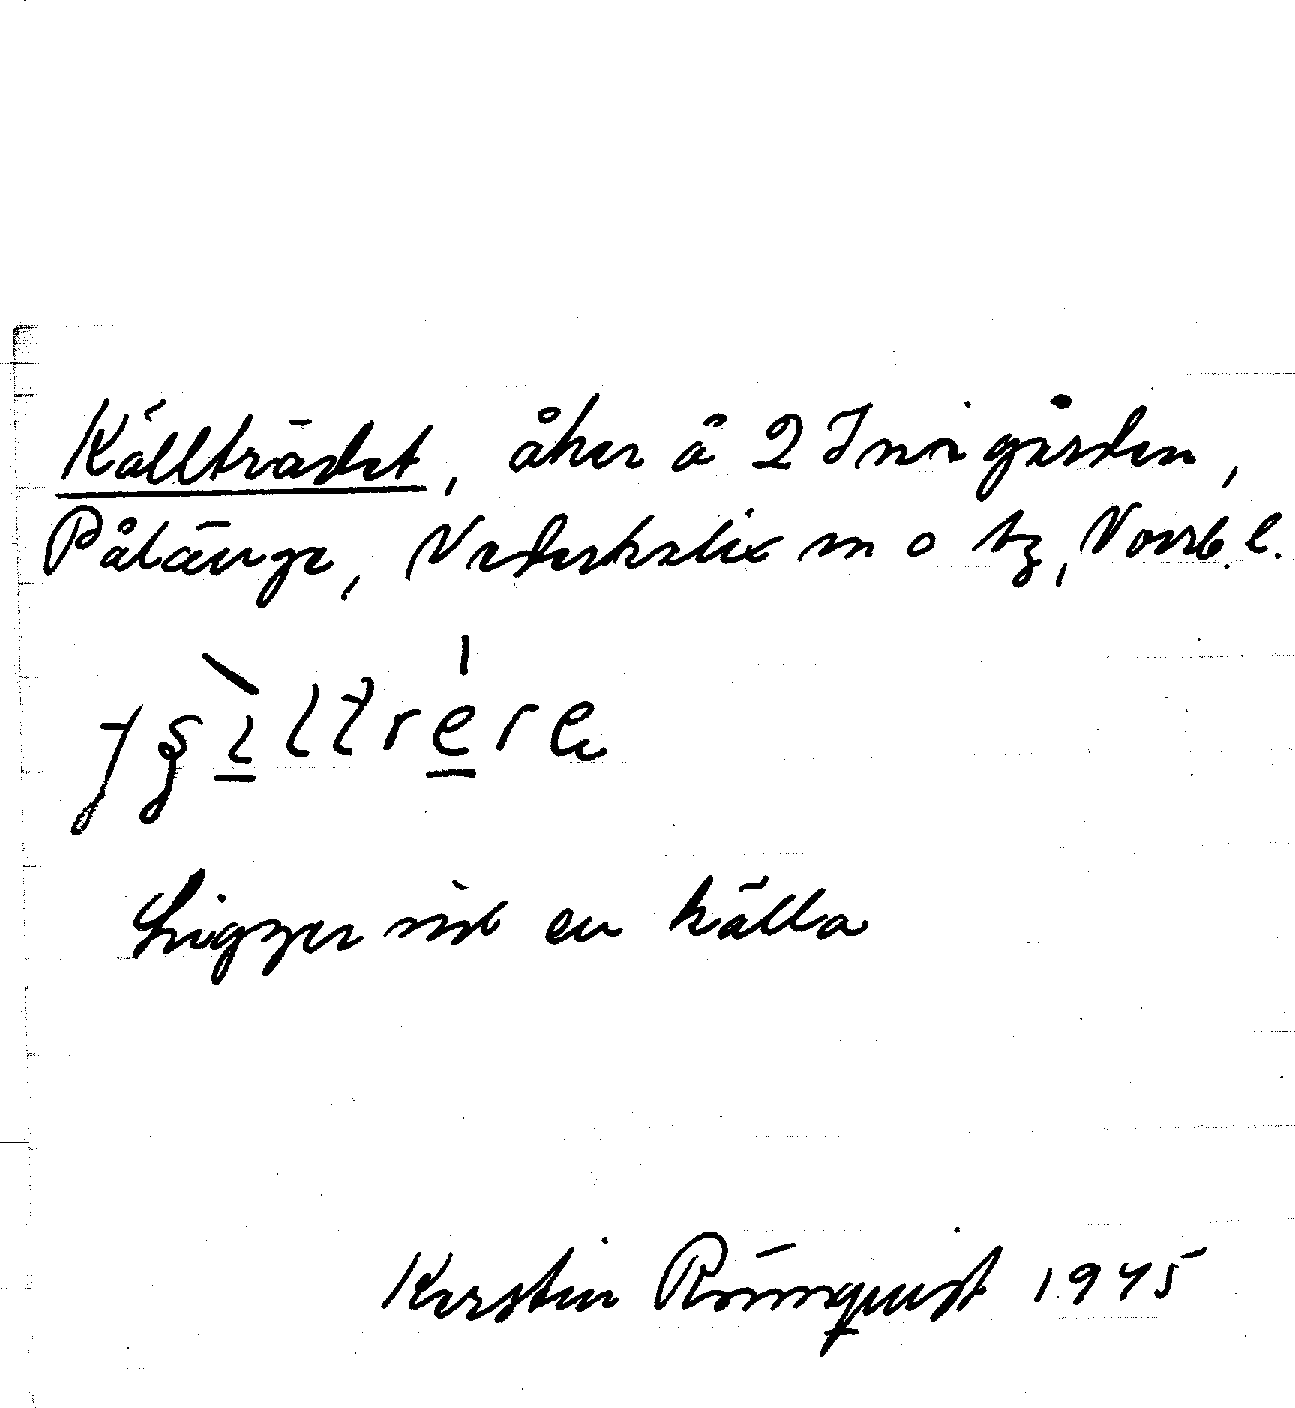 Källträdet, åker å 2 Innigården,
Pålänge, Nederkalix sn o tg, Norrb. l.
Ligger vid en källa
Kerstin Rönnquist 1945